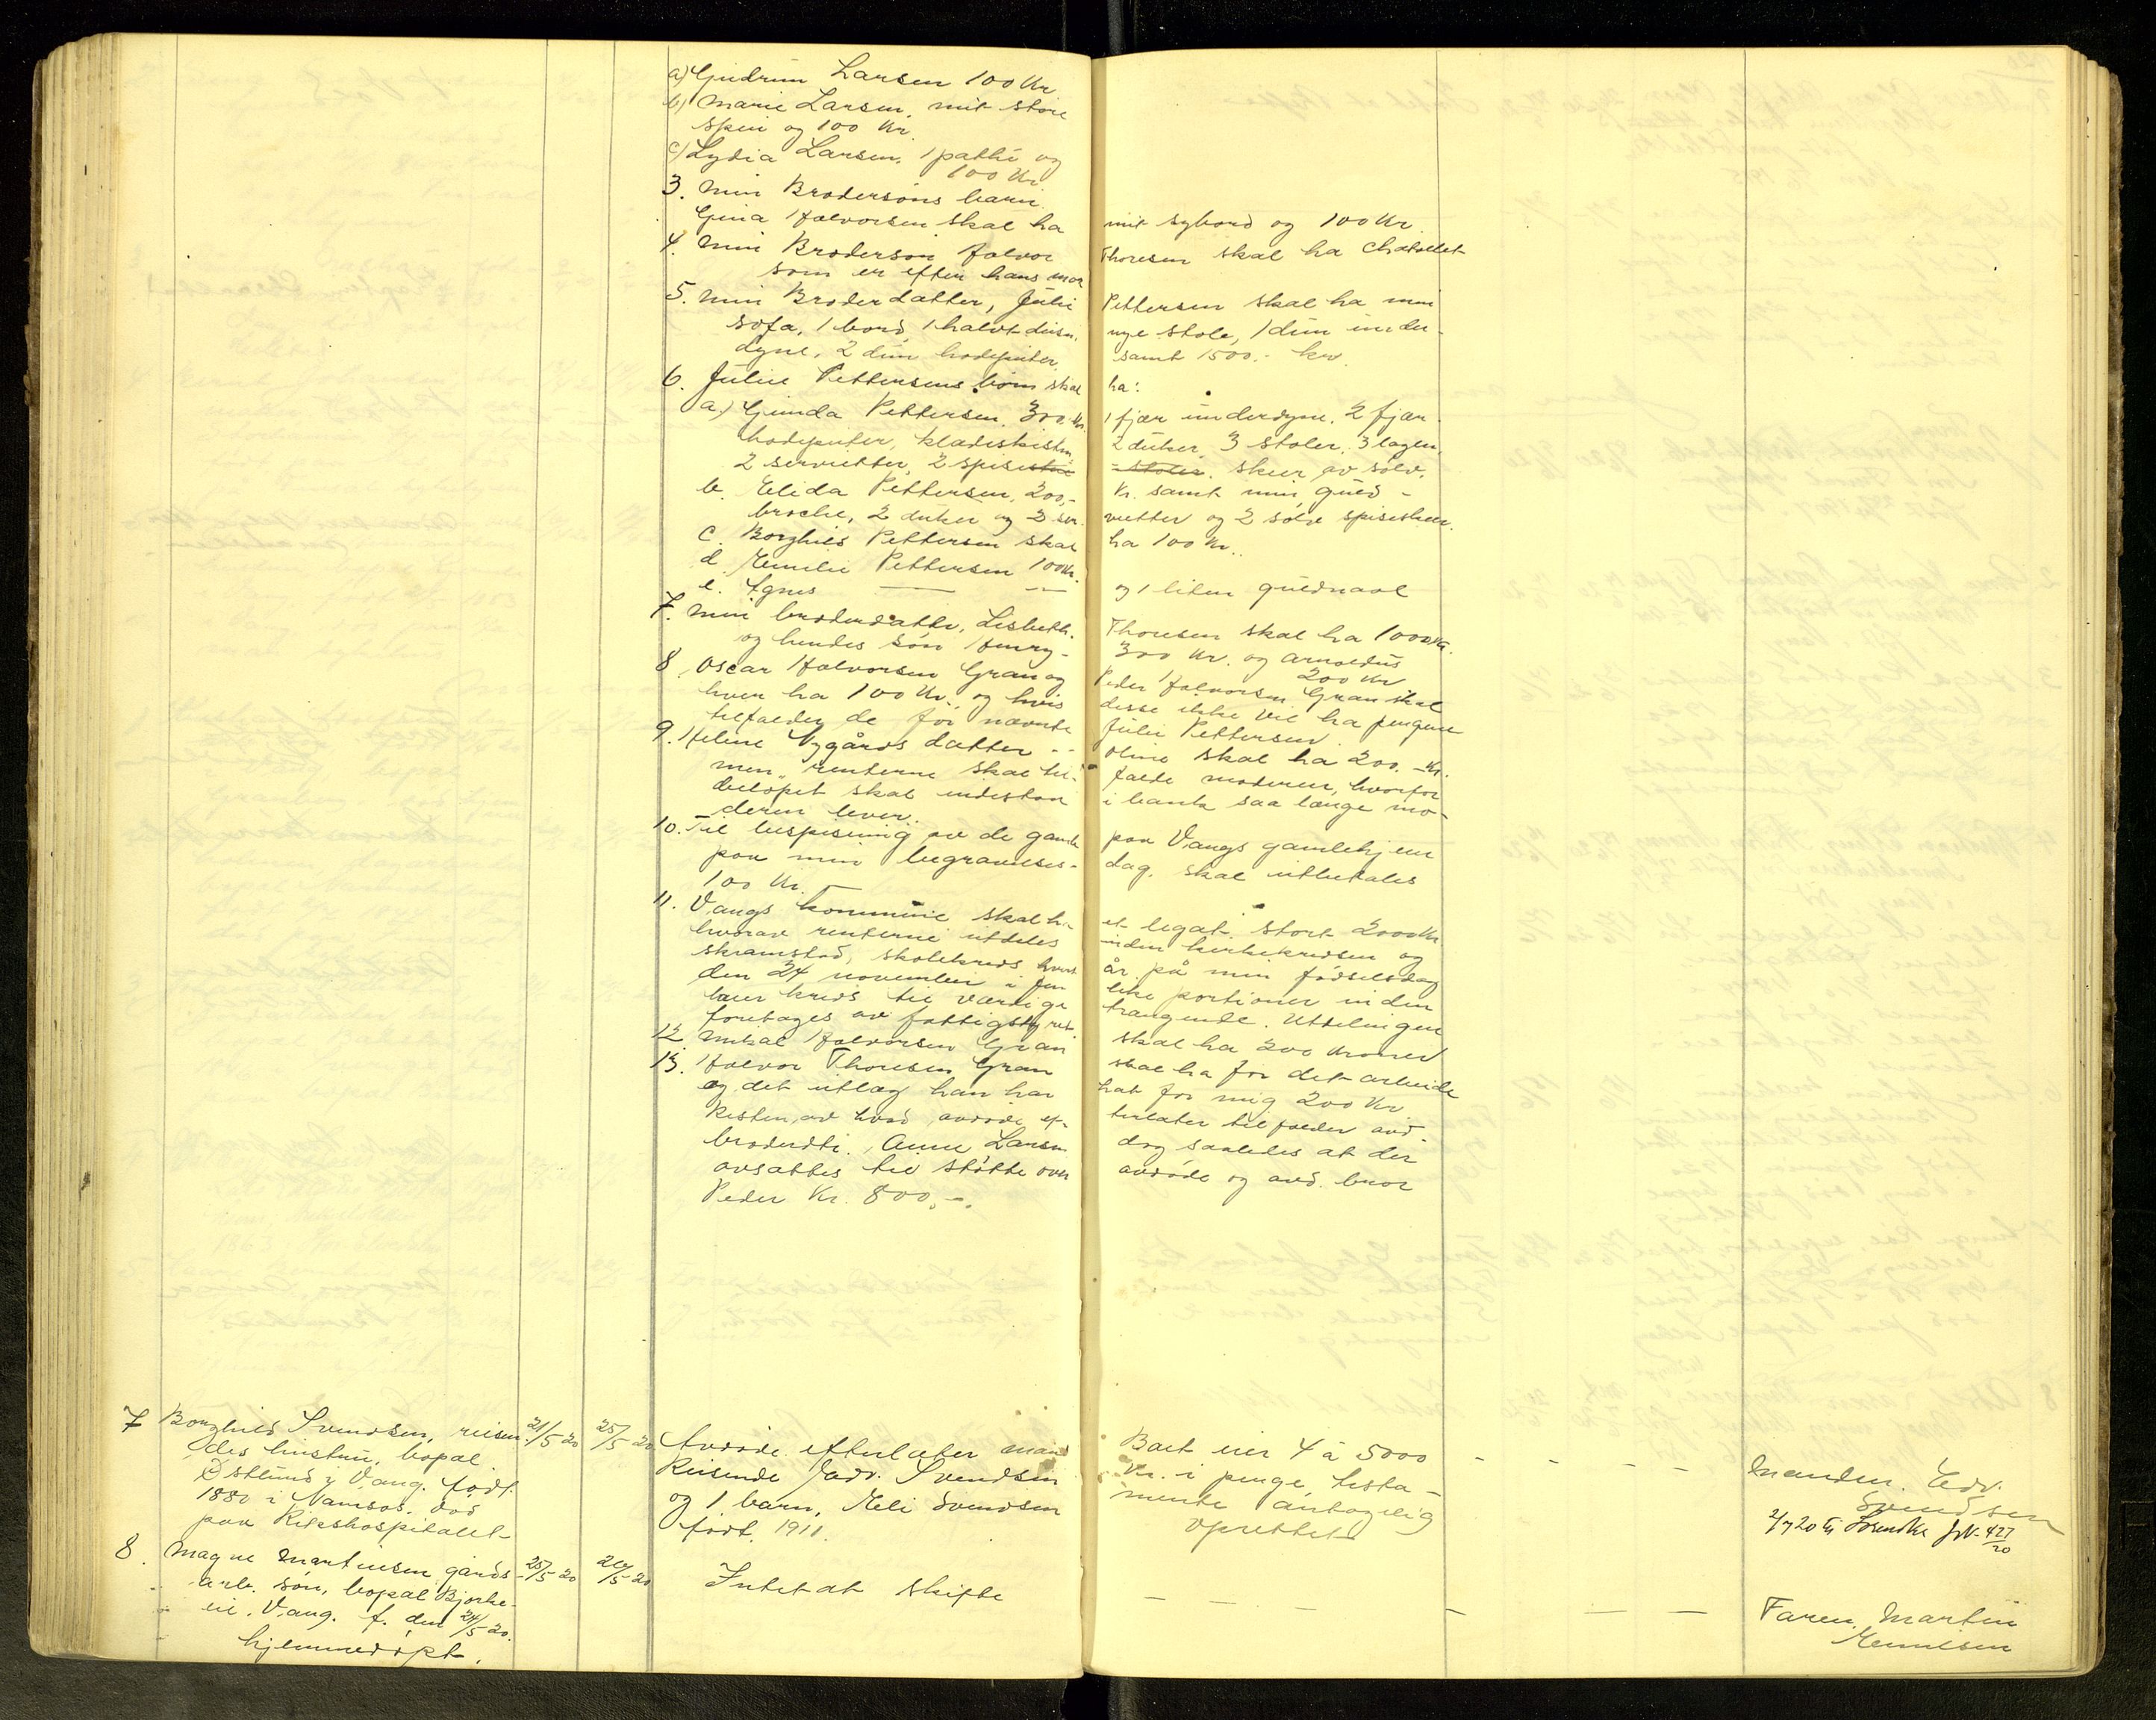 a) Gudrun Larsen 100 Kr
b) Marie Larsen, mit store
speil og 100 Kr.
c) Lydia Larsen, 1 og
100 Kr.
3. Min Brodersöns barn
Gina Halvorsen skal ha mit sybord og 100 Kr.
4. Min Broderson Halvor Thoresen skal ha Chatollet
som er efter hans mor
5. Min Broderdatter, Julie Pettersen skal ha min
sofa, 1 bord, 1 halvt dusin nye stole, 1 dun under-
dyne, 2 dun hodeputer, samt 1500.- kr.
6. Julie Pettersens börn skal ha:
a.) Gunda Pettersen, 300 Kr. 1 fjær underdyne, 2 fjær
hodeputer, klædeskisten 2 duker, 3 stoler, 3 lagen,
2 servietter, 2 spisestue - stoler. skeer av sölv.
b. Elida Pettersen, 200,- Kr. samt min guld -
broche, 2 duker og 2 ser- vietter og 2 sölv spiseskeer.
c. Borghild Pettersen skal ha 100 Kr.
d. Emilie Pettersen 100 Kr.
e. Agnes — — og 1 liten guldnaal
7. Min broderdatter, Lisbeth Thoresen skal ha 1000 Kr.
og hendes sön Henry - 300 Kr. og Arnoldus
200 Kr
8. Oscar Halvorsen Gran og Peder Halvorsen Gran skal
hver ha 100 Kr. og hvis disse ikke vil ha pengene
tilfalder de för nævnte Julie Pettersen.
9. Helene Nygårds datter - Oline skal ha 200.- Kr.
men renterne skal til- falde moderen, hvorfor
belöpet skal indestaa i bank saa længe mo-
deren lever.
10. Til bespisning av de gamle paa Vangs gamlehjem
paa min begravelses- dag, skal utbetales
100 Kr. —
11. Vangs kommune skal ha et legat stort 2000 Kr
hvorav renterne utdeles inden kirkekredsen og
skramstad, skolekreds hvert år på min födselsdag
den 24 november i fem like portioner inden
hver kreds til værdige trangende. Utdelingen
foretages av fattigstyret.
12. Mikal Halvorsen Gran skal ha 200 kroner
13. Halvor Thoresen Gran skal ha för det arbeide
og det utlæg han har hat for mig 200 Kr
Resten, av hvad avdöde ef- terlater tilfalder avd.
broderdtr., Anne Larsen dog saaledes at der
avsattes til stötte over avdöde og avd. bror
Peder Kr. 800,-.
7 Borghild Svendsen, reisen- 21/5 20 25/5 20 Avdöde efterlater mand Boet eier 4 à 5000 - - - - Manden. Edv.
des hustru, bopæl Reisende Edv. Svendsen Kr. i penge, testa- Svendsen
Östlund i Vang. född og 1 barn, Eli Svendsen mente antagelig 2/7 20 til
1880 i Namsos. död född 1911. oprettet
paa Rikshospitalet
8. Magne Martinsen gårds- 25/5 20 26/5 20 Intet at skifte — — — — — — Faren, Martin
arb. sön, bopæl Björke-
lie, Vang. f. den 24/5 20.
hjemmedöpt.